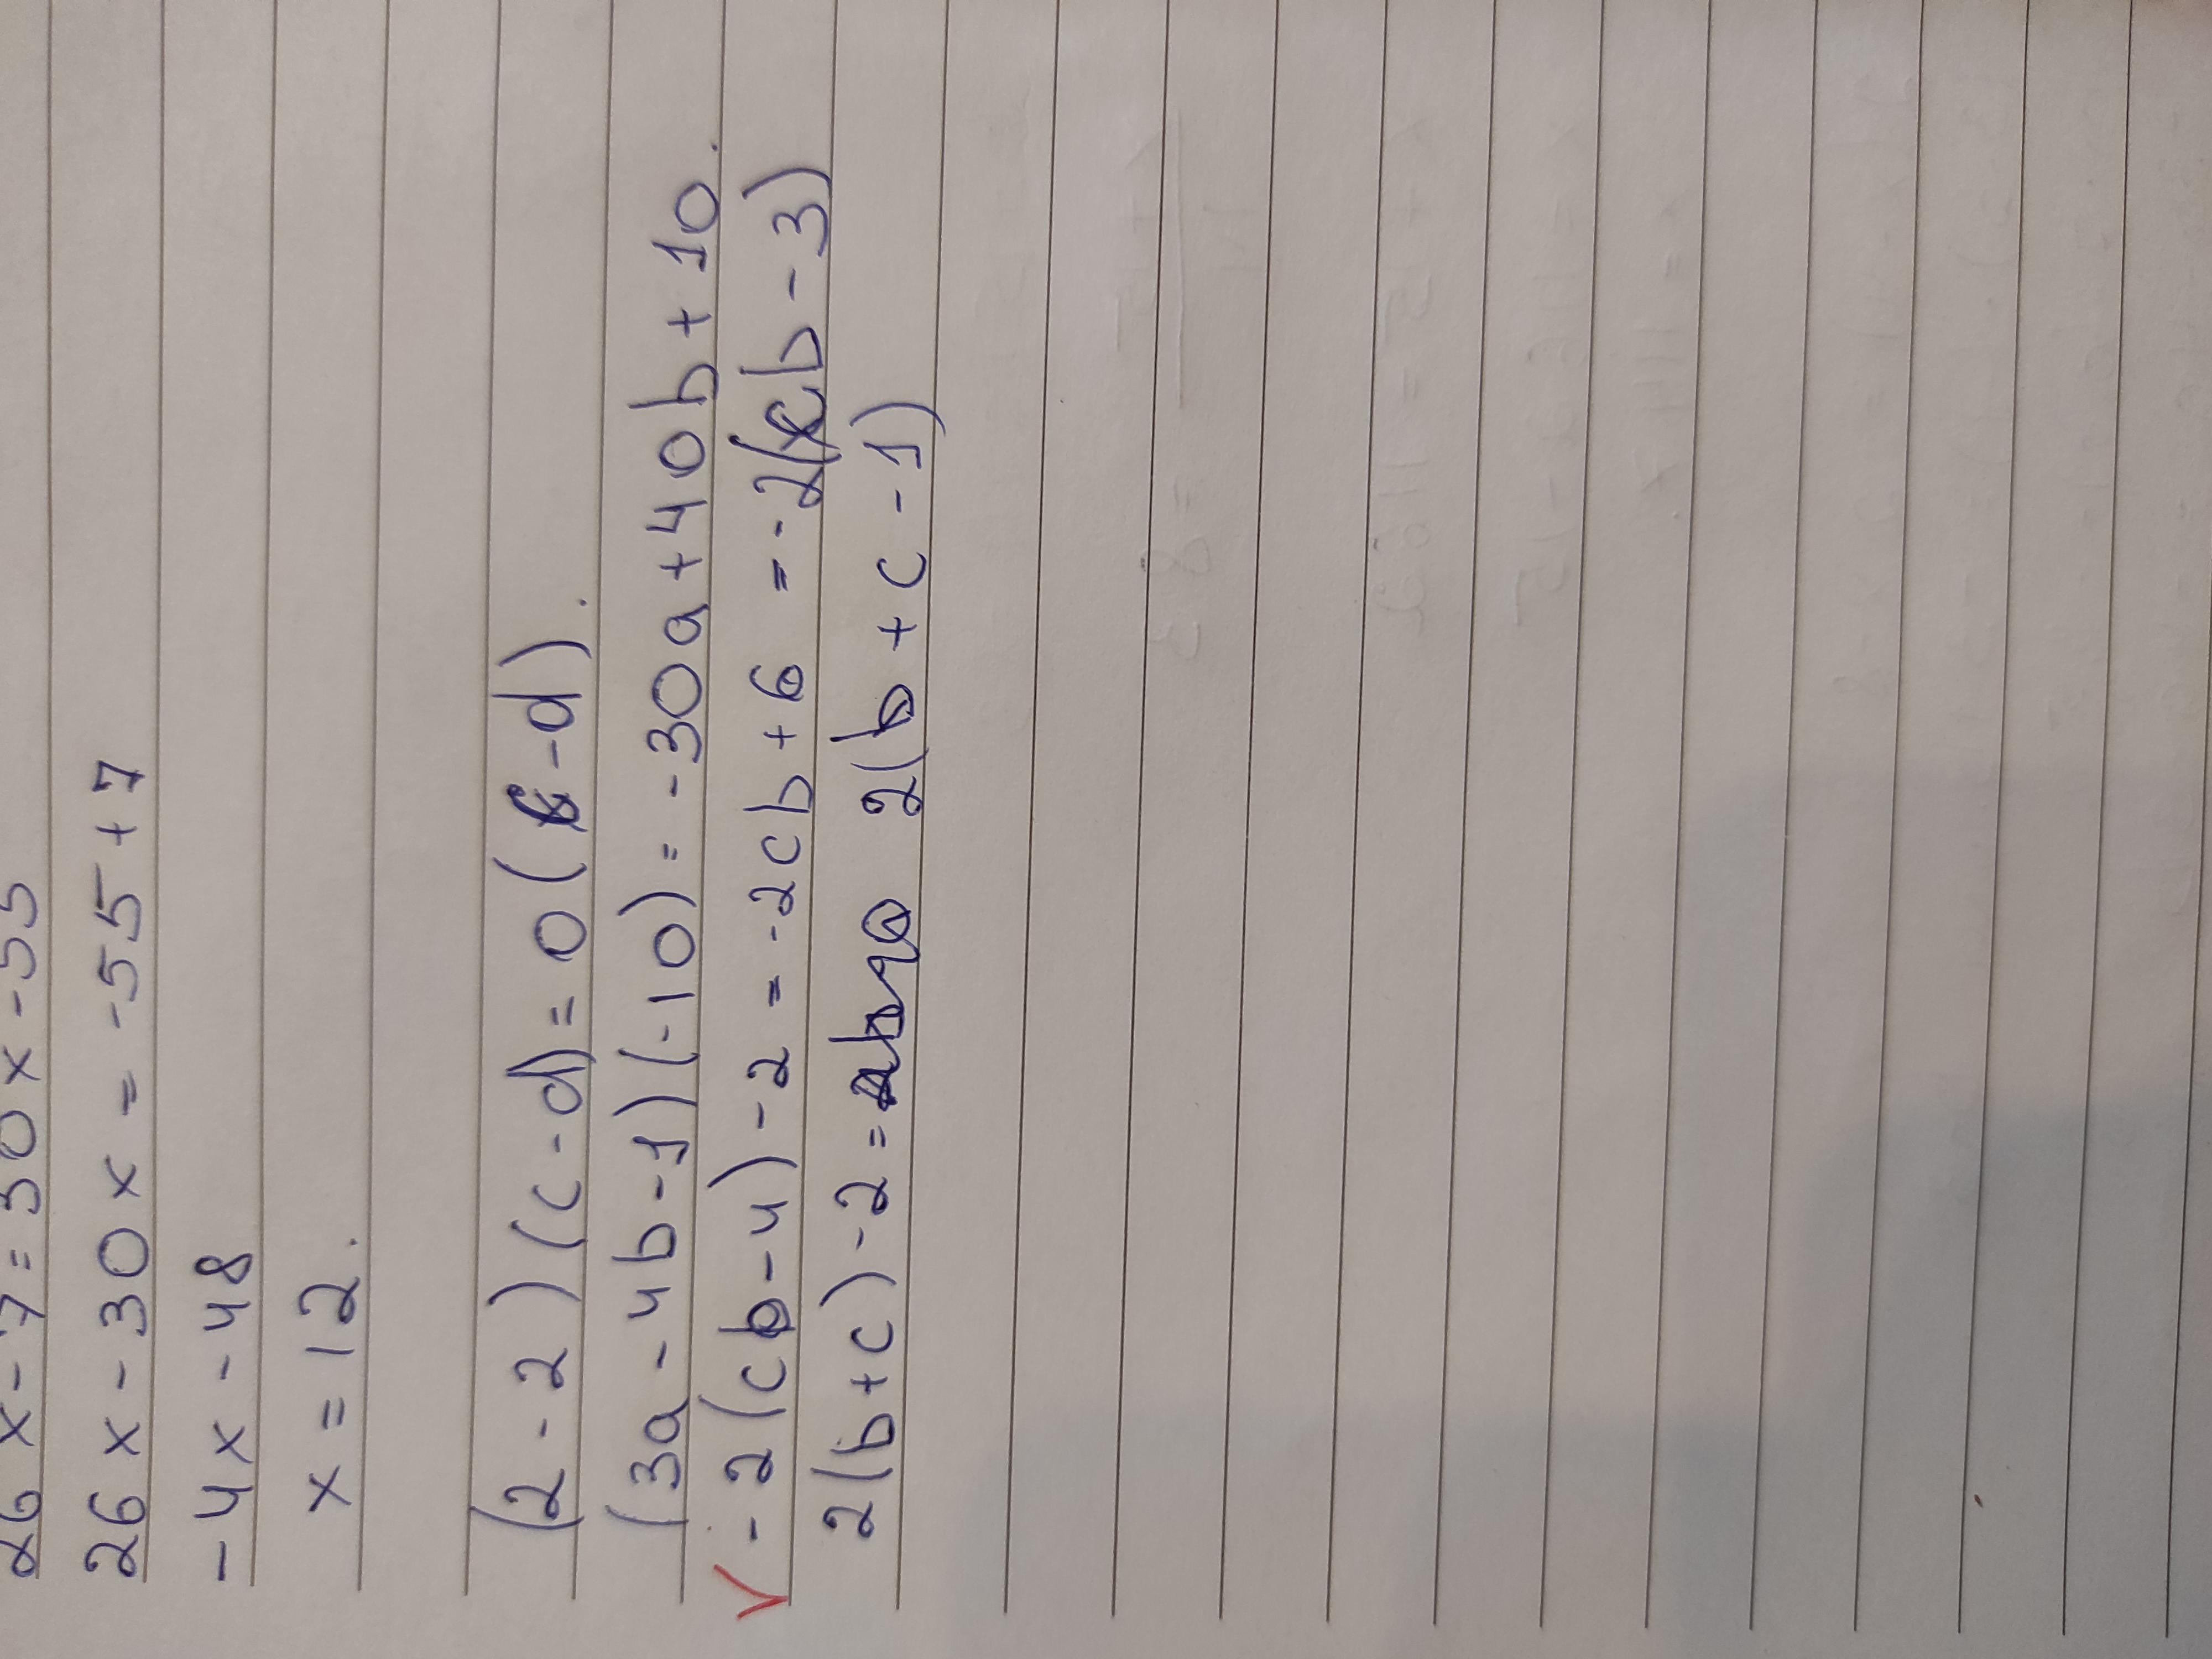 26x-7=30x-55
26x-30x=-55+7
-4x-48
x=12.
(2-2)(c-d)=0(c-d).
(3a-4b-1)(-10)=-30a+40b+10.
√-2(cb-4)-2=-2cb+6=-2(cb-3)
2(b+c)-2= 2(b+c-1)